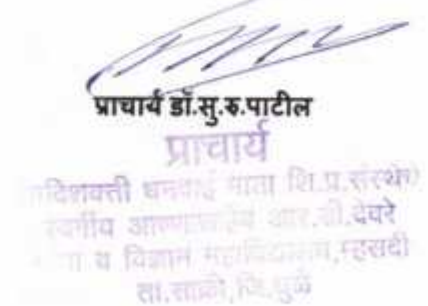 प्राचार्य डॉ.सु.रु.पाटील
प्राचार्य
आदिशक्ती धनदाई माता शि.प्र.संस्थेचे
स्वर्गीय आण्णासाहेब आर.डी.देवरे
कला व विज्ञान महाविद्यालय,म्हसदी
ता.साक्री,जि.धुळे